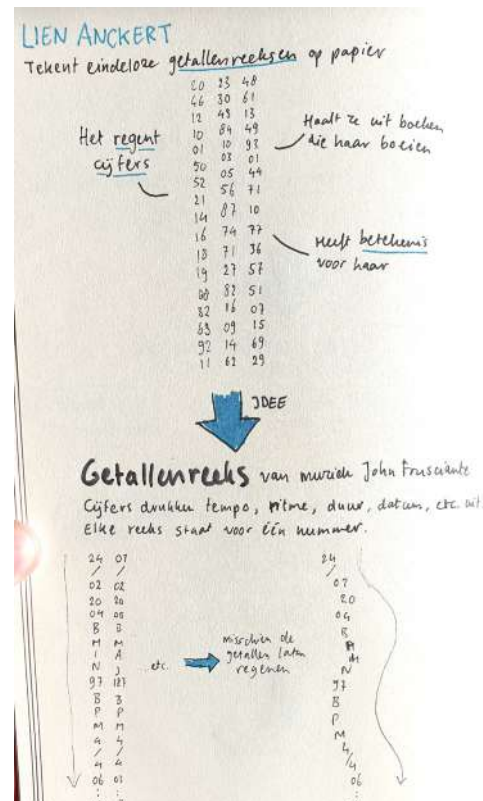 LIEN ANCKERT
Tekent eindeloze getallenreeksen op papier
20 23 48
46 30 61
12 43 13
10 84 49
01 10 93
50 03 01
52 05 44
21 56 71
14 87 10
16 74 77
18 71 36
19 27 57
00 82 51
82 16 07
63 09 15
92 14 69
11 62 29
Het regent
cijfers
Haalt ze uit boeken
die haar boeien
Heeft betekenis
voor haar
IDEE
Getallenreeks van muziek John Frusciante
Cijfers drukken tempo, ritme, duur, datum, etc. uit.
Elke reeks staat voor één nummer.
24 07
/ /
02 02
20 20
04 05
B B
M M
I A
N J
97 127
B B
P P
M M
4 4
/ /
4 4
06 03
: :
etc.
misschien de
getallen laten
regenen
24
/
02
20
04
B
M
N
97
B
P
M
4/4
06
: